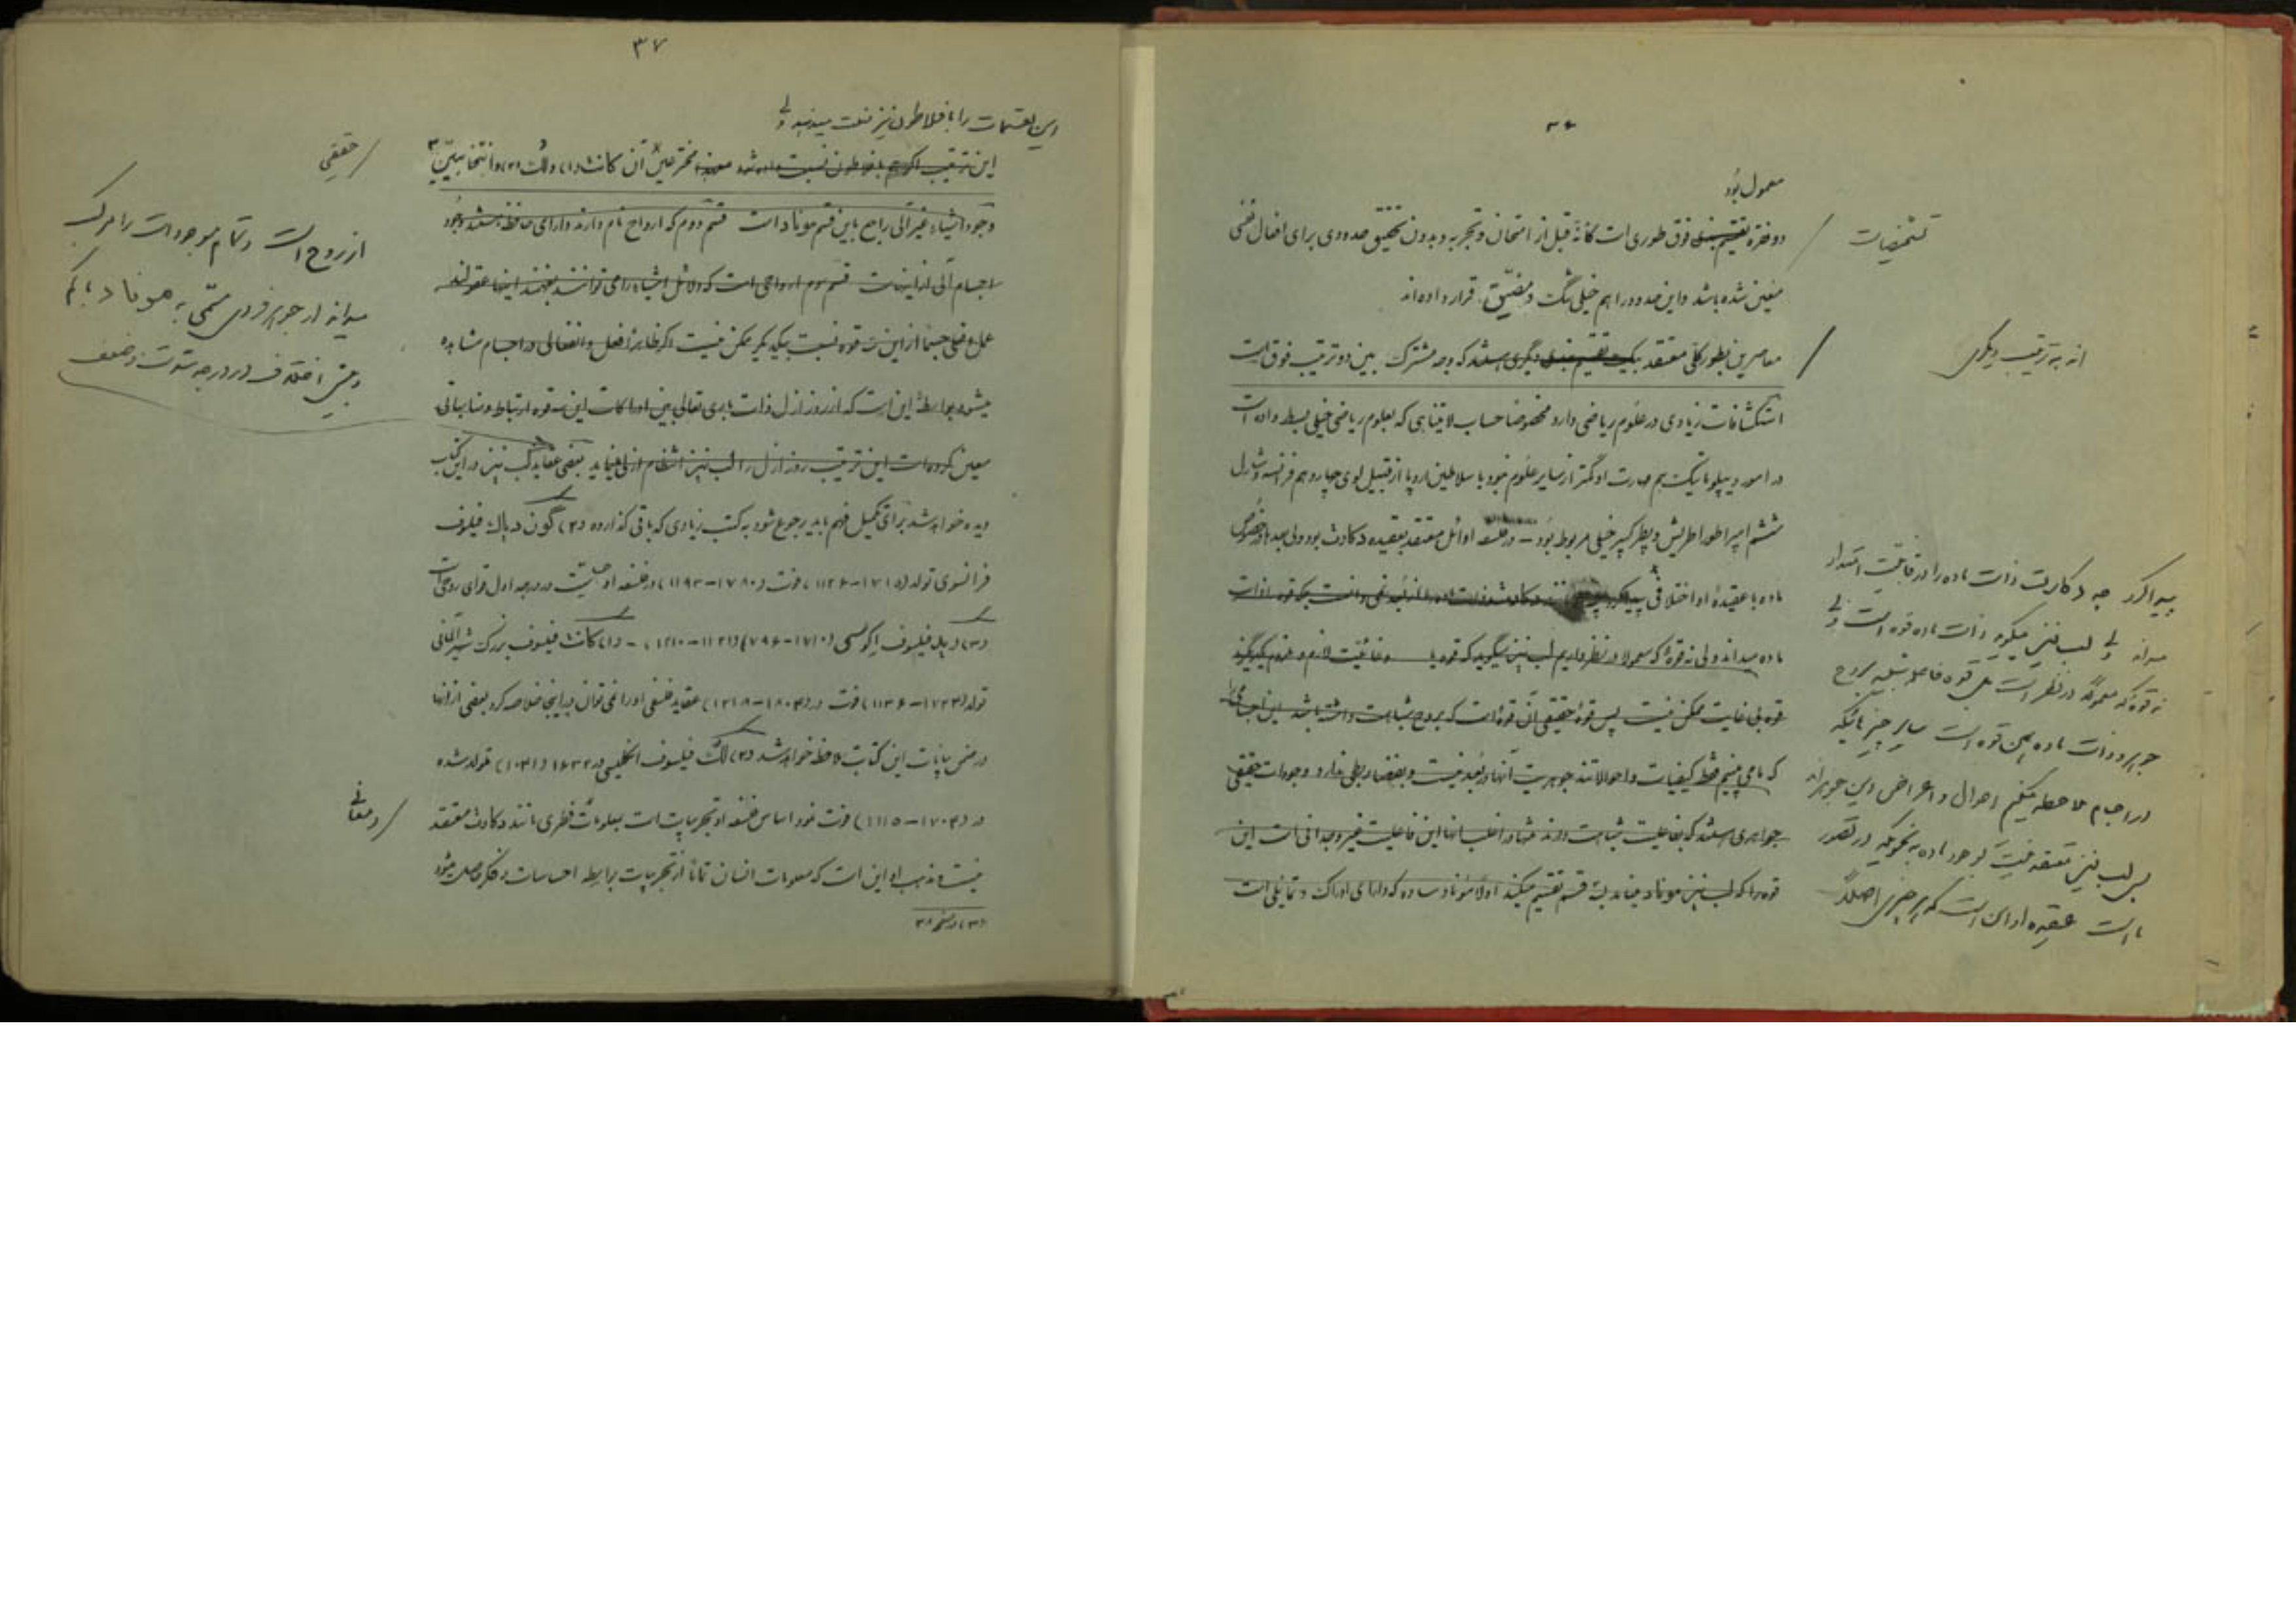 ۳۶
معمول بود
دو فقره تقسیم بندی فوق طوری است کانّه قبل از امتحان و تجربه و بدون تحقیق حدودی برای افعال نفسی
تشخیصات
معین شده باشد و این حدود را هم خیلی تنگ و مضیّق قرار داده‌اند
معاصرین بطور کلی معتقد بیک تقسیم بندی دیگری هستند که وجه مشترک بین دو ترتیب فوق است
اند به ترتیب دیگری
استکشافات زیادی در علوم ریاضی دارد مخصوصا حساب لایتناهی که بعلوم ریاضی خیلی بسط داده است
در امور دیپلوماتیک هم مهارت او کمتر از سایر علوم نبود با سلاطین اروپا از قبیل لوی چهاردهم فرانسه و شارل
ششم امپراطور اطریش و پطر کبیر خیلی مربوط بود – در فلسفه اوائل معتقد بعقیده دکارت بود ولی بعد در خصوص
ماده با عقیدهٔ او اختلافی پیدا کرد
ماده میداند ولی نه قوهٔ که معمولا در نظر داریم لیب نیز میگوید که قوه با و فاعلیت لازم و ملزوم یکدیگرند
قوه بی فاعلیت ممکن نیست پس قوهٔ حقیقی آن قوه است که بروح شباهت داشته باشد این اجسامی
که ما می بینیم فقط کیفیات و احوالاتند جوهریت آنها در بُعد نیست و بفضا ربطی ندارد وجودات حقیقی
جواهری هستند که بفاعلیت شباهت دارند منتها در اغلب آنها این فاعلیت غیر وجدانی است این
قوه را که لیب نیز موناد مینامد بسه قسم تقسیم میکند اولا موناد ساده که دارای ادراک و تمایلی است
پیدا کرد چه دکارت ذات ماده را در قابلیت امتداد
میداند ولی لیب نیز میگوید ذات ماده قوه است ولی
نه قوهٔ که معمولا در نظر است بل قوه فاعله شبیه بروح
جوهر و ذات ماده همین قوه است سایر چیزهائیکه
در اجسام ملاحظه میکنیم احوال و اعراض این جوهراند
پس لیب نیز معتقد نیست بوجود ماده به نحویکه در تصور
ما است عقیده او این است که هر چیزی اصلاً
۳۷
این تقسیمات را به افلاطون نیز نسبت میدهند ولی
این ترتیب اگر هم بافلاطون نسبت داده شود معهذا مخترعین آن کانت (۱) و لک (۲) و
حقیقی
وجود اشیاء غیر آلی راجع باین قسم موناد است قسم دوم که ارواح نام دارند و دارای حافظه هستند وجود
اجسام آلی از اینهاست قسم سوم ارواحی است که دلائل اشیاء را می توانند بفهمند اینها عقولند
عمل و فعلی جسما از این سه قوه نسبت بیکدیگر ممکن نیست اگر ظاهراً فعل و انفعالی در اجسام مشاهده
میشود بواسطهٔ این است که از روز ازل ذات باری تعالی بین ادراکات این سه قوه ارتباط و مناسباتی
معین کرده است این ترتیب روز ازل را لیب نیز انتظام ازلی مینامد بعضی عقاید لیب نیز در این کتاب
دیده خواهد شد برای تکمیل فهم باید رجوع شود به کتب زیادی که باقی گذارده (۲) گون دیاک فیلسوف
فرانسوی تولد (۱۷۱۵–۱۱۲۶) فوت (۱۷۸۰–۱۱۹۳) در فلسفه او در درجه اول قوای روحی است
(۳) رید فیلسوف اکوسی (۱۷۱۰–۷۹۶) (۱۱۲۱–۱۲۱۰) – (۱) کانت فیلسوف بزرگ شهیر آلمانی
تولد (۱۷۲۳–۱۱۳۶) فوت در (۱۸۰۳–۱۲۱۸) عقاید فلسفی او را نمی توان در اینجا خلاصه کرد بعضی از آنها
در ضمن بیانات این کتاب ملاحظه خواهد شد (۲) لک فیلسوف انگلیسی در ۱۶۳۲ (۱۰۴۱) متولد شده
در (۱۷۰۴–۱۱۱۵) فوت نمود اساس فلسفه او تجربیات است بمعلومات فطری مانند دکارت معتقد
و معانی
نیست مذهب او این است که معلومات انسان تماماً از تجربیات بواسطه احساسات و فکر حاصل میشود
(۳) در صفحه ۳۸
از روح است و تمام موجودات را مرکب
میداند از جوهر فردی مسمّی به موناد
اختلاف در درجه شدت و ضعف